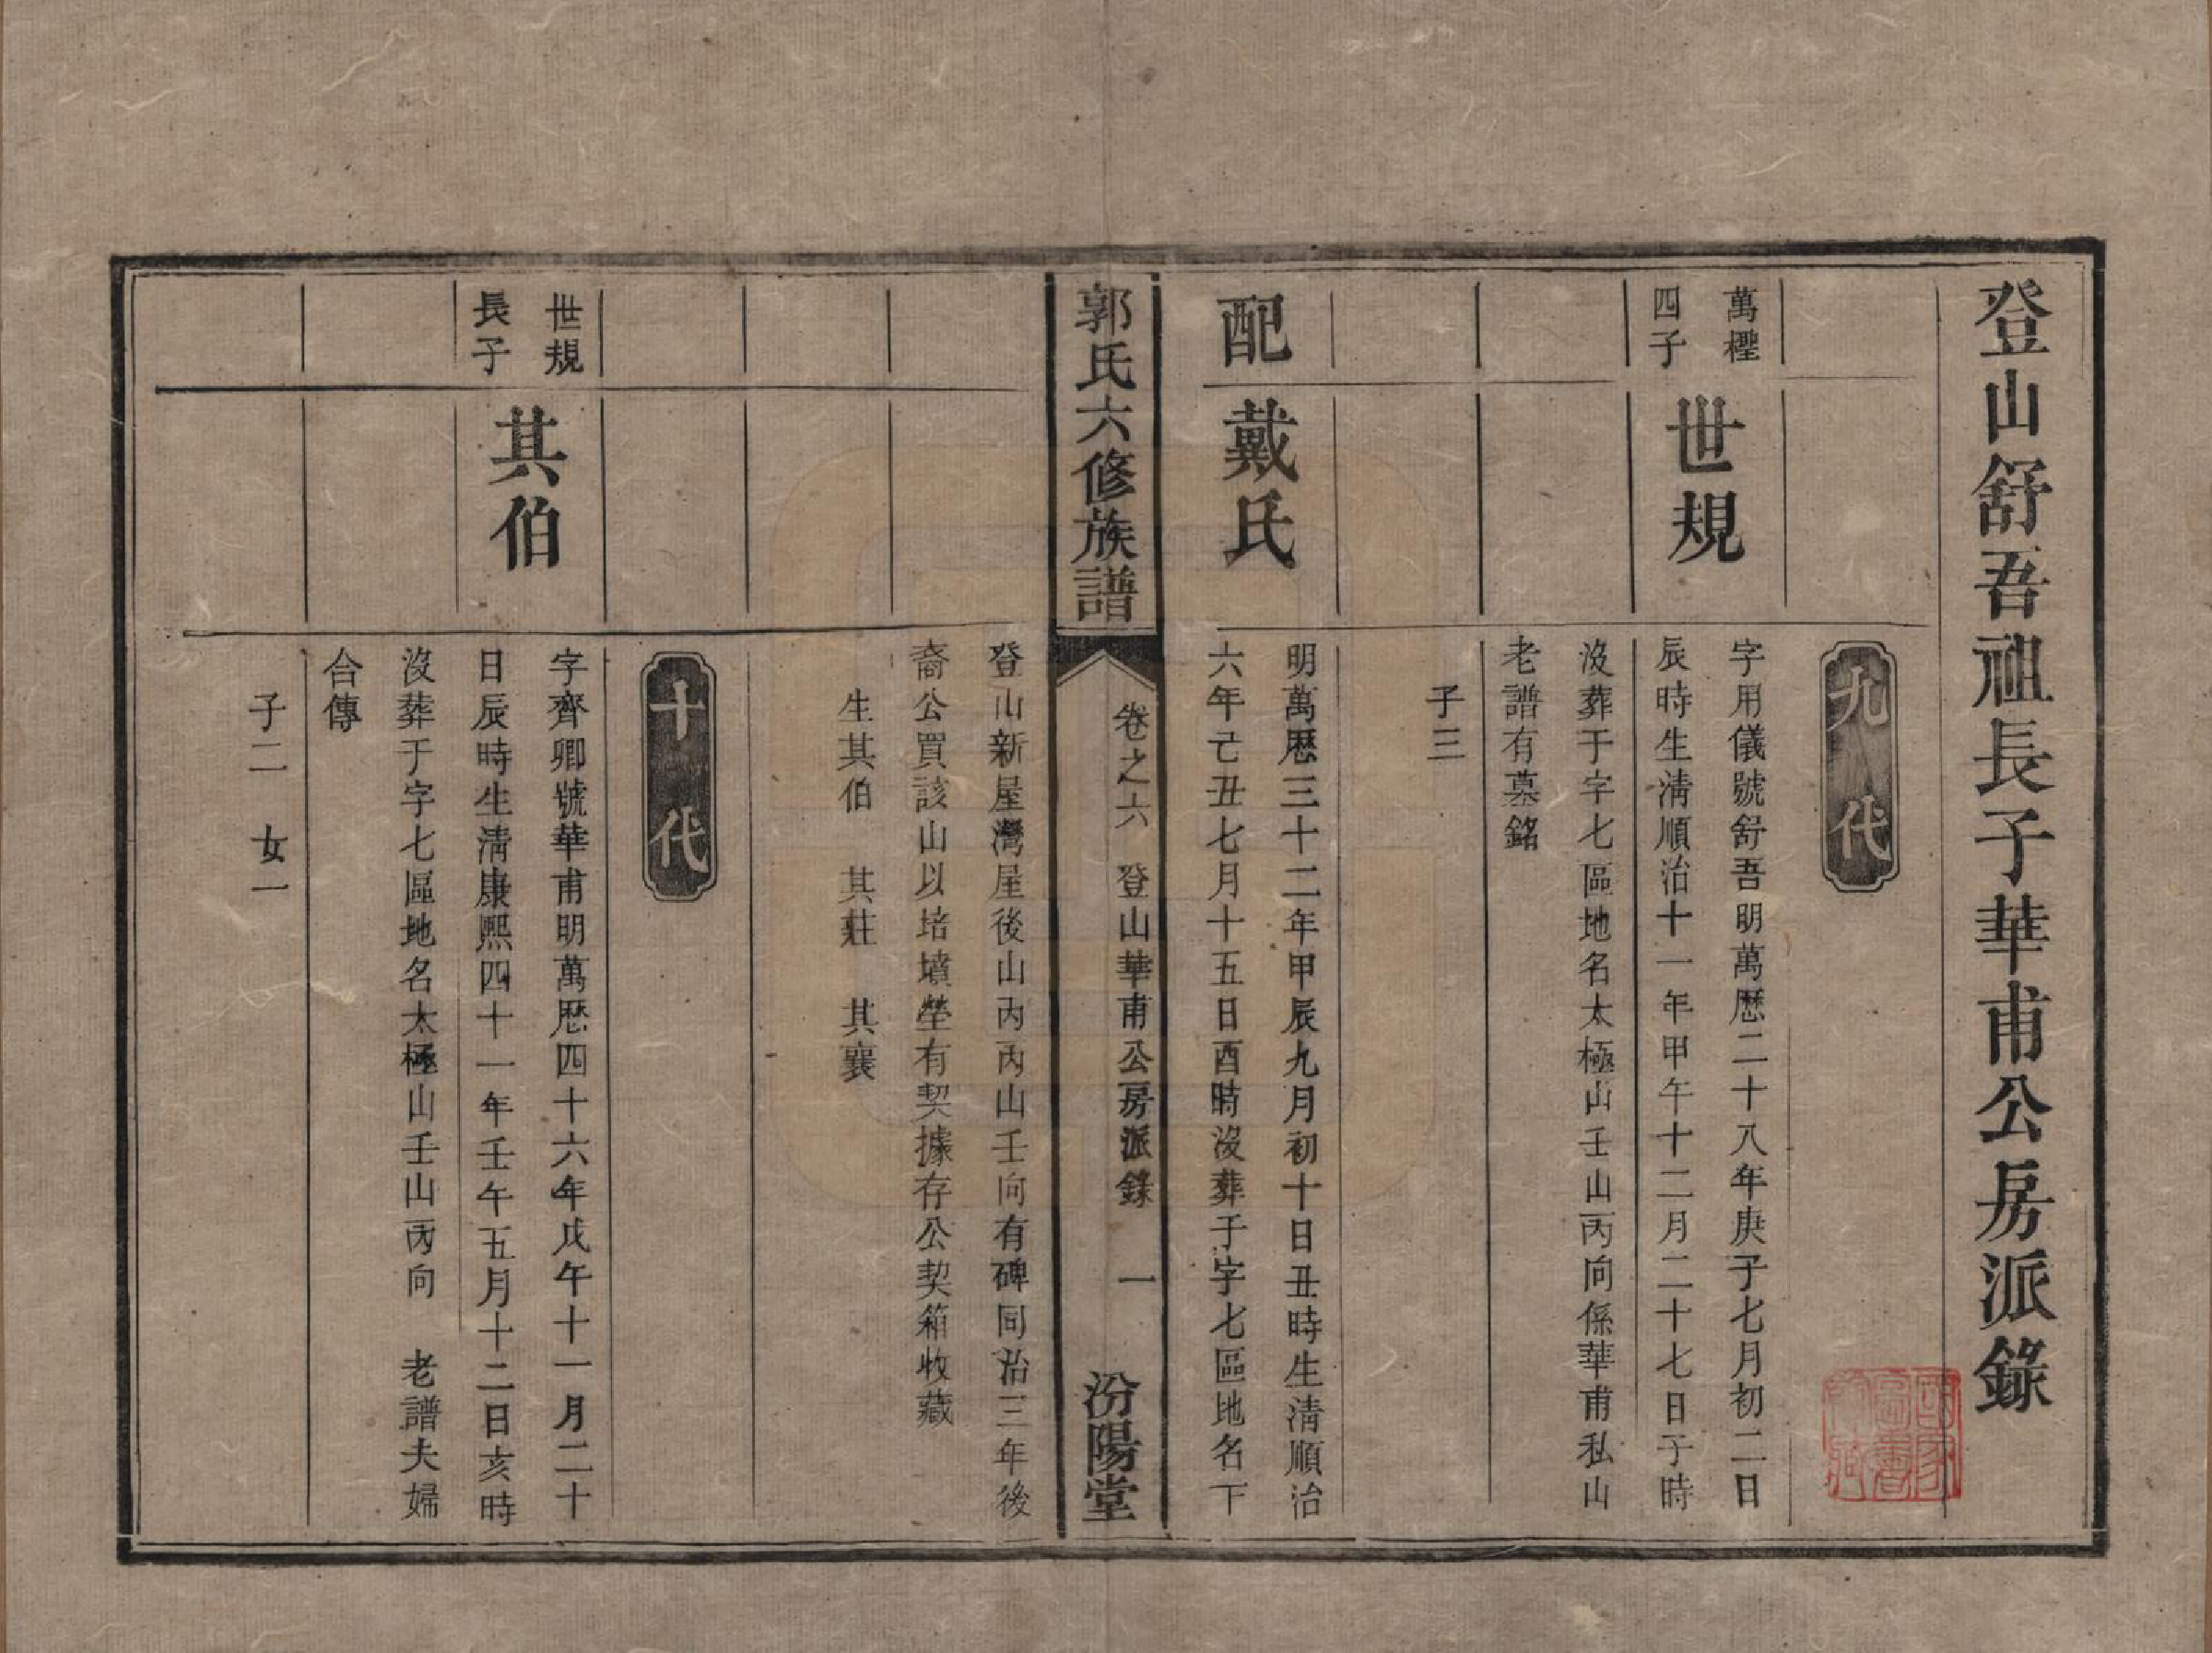 登山舒吾祖長子華甫公房派錄
九代
萬樫
四子
世規
字用儀號舒吾明萬歷二十八年庚子七月初二日
辰時生淸順治十一年甲午十二月二十七日子時
沒葬于字七區地名太極山壬山丙向係華甫私山
老譜有墓銘
子三
配
戴氏
明萬歷三十二年甲辰九月初十日丑時生淸順治
六年己丑七月十五日酉時沒葬于字七區地名下
郭氏六修族譜
卷之六 登山華甫公房派錄 一
汾陽堂
登山新屋灣屋後山內丙山壬向有碑同治三年後
裔公買該山以培墳塋有契據存公契箱收藏
生其伯 其莊 其襄
十代
世規
長子
其伯
字齊卿號華甫明萬歷四十六年戊午十一月二十
日辰時生淸康熙四十一年壬午五月十二日亥時
沒葬于字七區地名太極山壬山丙向 老譜夫婦
合傳
子二 女一